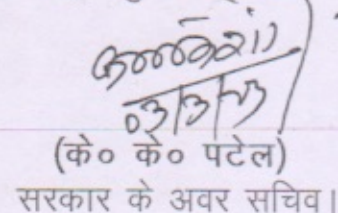 03/3/23
(के० के० पटेल)
सरकार के अवर सचिव।